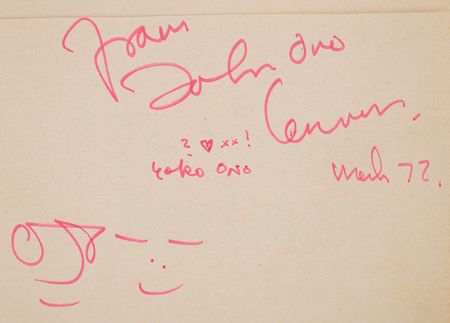 from
John Ono
Lennon,
2 ♥ xx!
Yoko Ono
March 72.